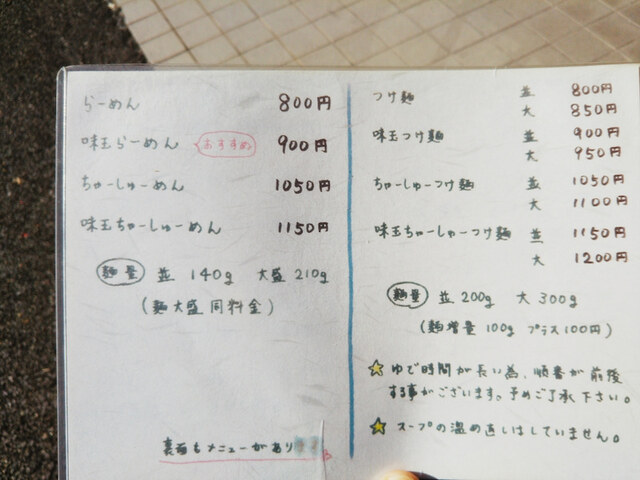 らーめん 800円
味玉らーめん おすすめ 900円
ちゃーしゅーめん 1050円
味玉ちゃーしゅーめん 1150円
麺量 並 140g 大盛 210g
(麺大盛 同料金)
裏面もメニューがあり
つけ麺 並 800円
大 850円
味玉つけ麺 並 900円
大 950円
ちゃーしゅーつけ麺 並 1050円
大 1100円
味玉ちゃーしゅーつけ麺 並 1150円
大 1200円
麺量 並 200g 大 300g
(麺増量 100g プラス 100円)
ゆで時間が長い為、順番が前後
する事がございます。予めご了承下さい。
スープの温め直しはしていません。